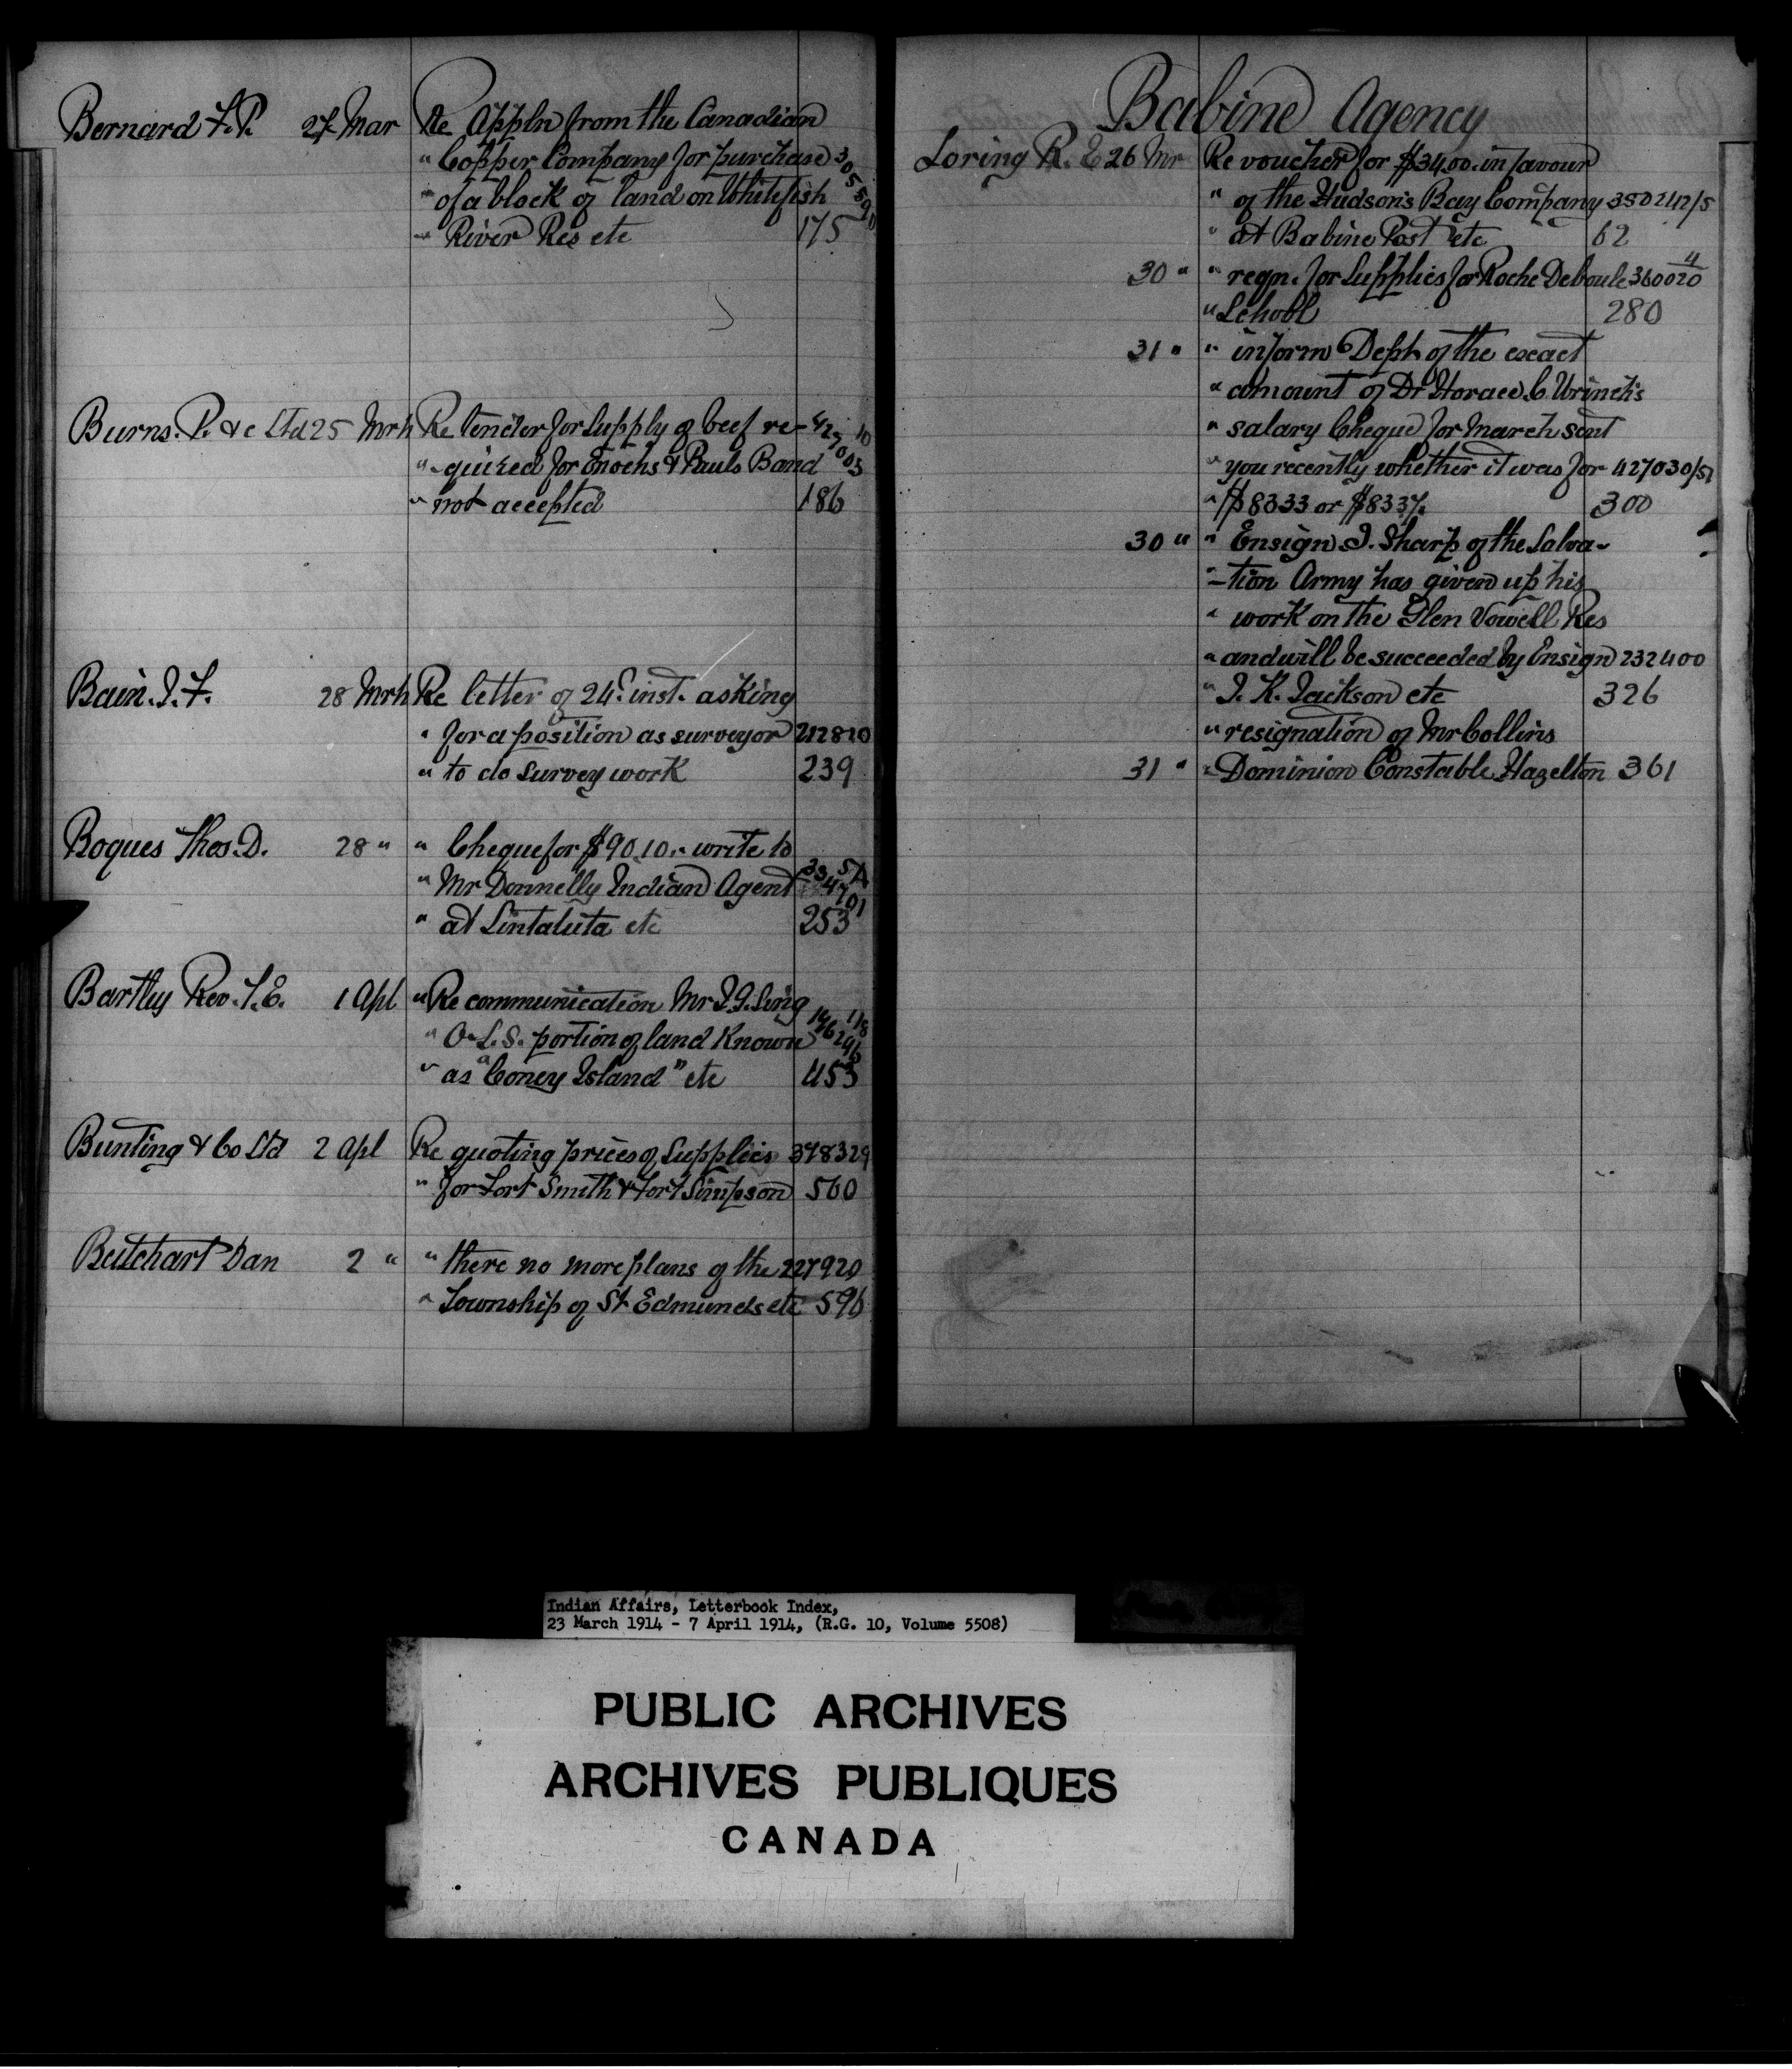 Bernard F. P. 27 Mar Re Appln from the Canadian
" Copper Company for purchase 305590
" of a block of land on Whitefish
" River Res etc 175
Burns. P. & c Ltd 25 Mrh Re tender for supply of beef re- 427003
" -quired for Enochs & Pauls Band
" not accepted 186
Bain. J. F. 28 Mrh Re letter of 24th inst. asking
" for a position as surveyor 212820
" to do survey work 239
Boques Thos. D. 28 " " Cheque for $90.10. " write to
" Mr Donnelly Indian Agent
" at Sintaluta etc 253
Bartley Rev. T. E. 1 Apl " Re communication Mr J. G. Sing
" O. L. S. portion of land Known
" as "Coney Island" etc 453
Bunting & Co Ltd 2 Apl Re quoting prices of Supplies 378329
" for Fort Smith & Fort Simpson 560
Butchart Dan 2 " " there no more plans of the 227920
" Township of St Edmunds etc 596
Babine Agency
Loring R. E 26 Mr Re voucher for $34.00. in favour
" of the Hudson's Bay Company
" at Babine Post etc 62
30 " " reqn. for Supplies for Roche Deboule 360020
" School 280
31 " " inform Dept of the exact
" amount of Dr Horace C. Wrinch's
" salary Cheque for March sent
" you recently whether it was for 427030/51
" $8333 or $8337. 300
30 " " Ensign J. Sharp of the Salva-
" -tion Army has given up his
" work on the Glen Vowell Res
" and will be succeeded by Ensign 232400
" J. K. Jackson etc 326
" resignation of Mr Collins
31 " " Dominion Constable Hazelton 361
Indian Affairs, Letterbook Index,
23 March 1914 - 7 April 1914, (R.G. 10, Volume 5508)
PUBLIC ARCHIVES
ARCHIVES PUBLIQUES
CANADA